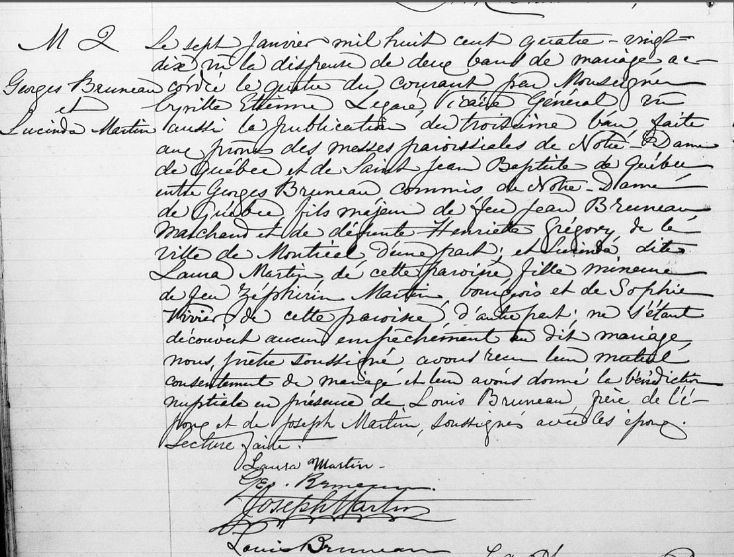 M 2
Georges Bruneau
et
Lucinda Martin
Le sept Janvier mil huit cent quatre-vingt-
dix vu la dispense de deux bans de mariage ac-
cordée le quatre du courant par Monseigneur
Cyrille Etienne Legaré, Vicaire Général, vu
aussi la publication du troisième ban faite
aux prônes des messes paroissiales de Notre-Dame
de Québec et de Saint Jean Baptiste de Québec
entre Georges Bruneau commis de Notre-Dame
de Québec fils majeur de feu Jean Bruneau
Marchand et de défunte Henriette Grégory, de la
ville de Montréal, d'une part; et Lucinda dite
Laura Martin de cette paroisse, fille mineure
de feu Zéphirin Martin, bourgeois et de Sophie
Vivier de cette paroisse, d'autre part; ne s'étant
découvert aucun empêchement au dit mariage,
nous, prêtre soussigné, avons reçu leur mutuel
consentement de mariage et leur avons donné la bénédiction
nuptiale en présence de Louis Bruneau, frère de l'é-
poux et de Joseph Martin, soussignés avec les époux.
Lecture faite.
Laura Martin.
Geo. Bruneau.
Joseph Martin
Louis Bruneau